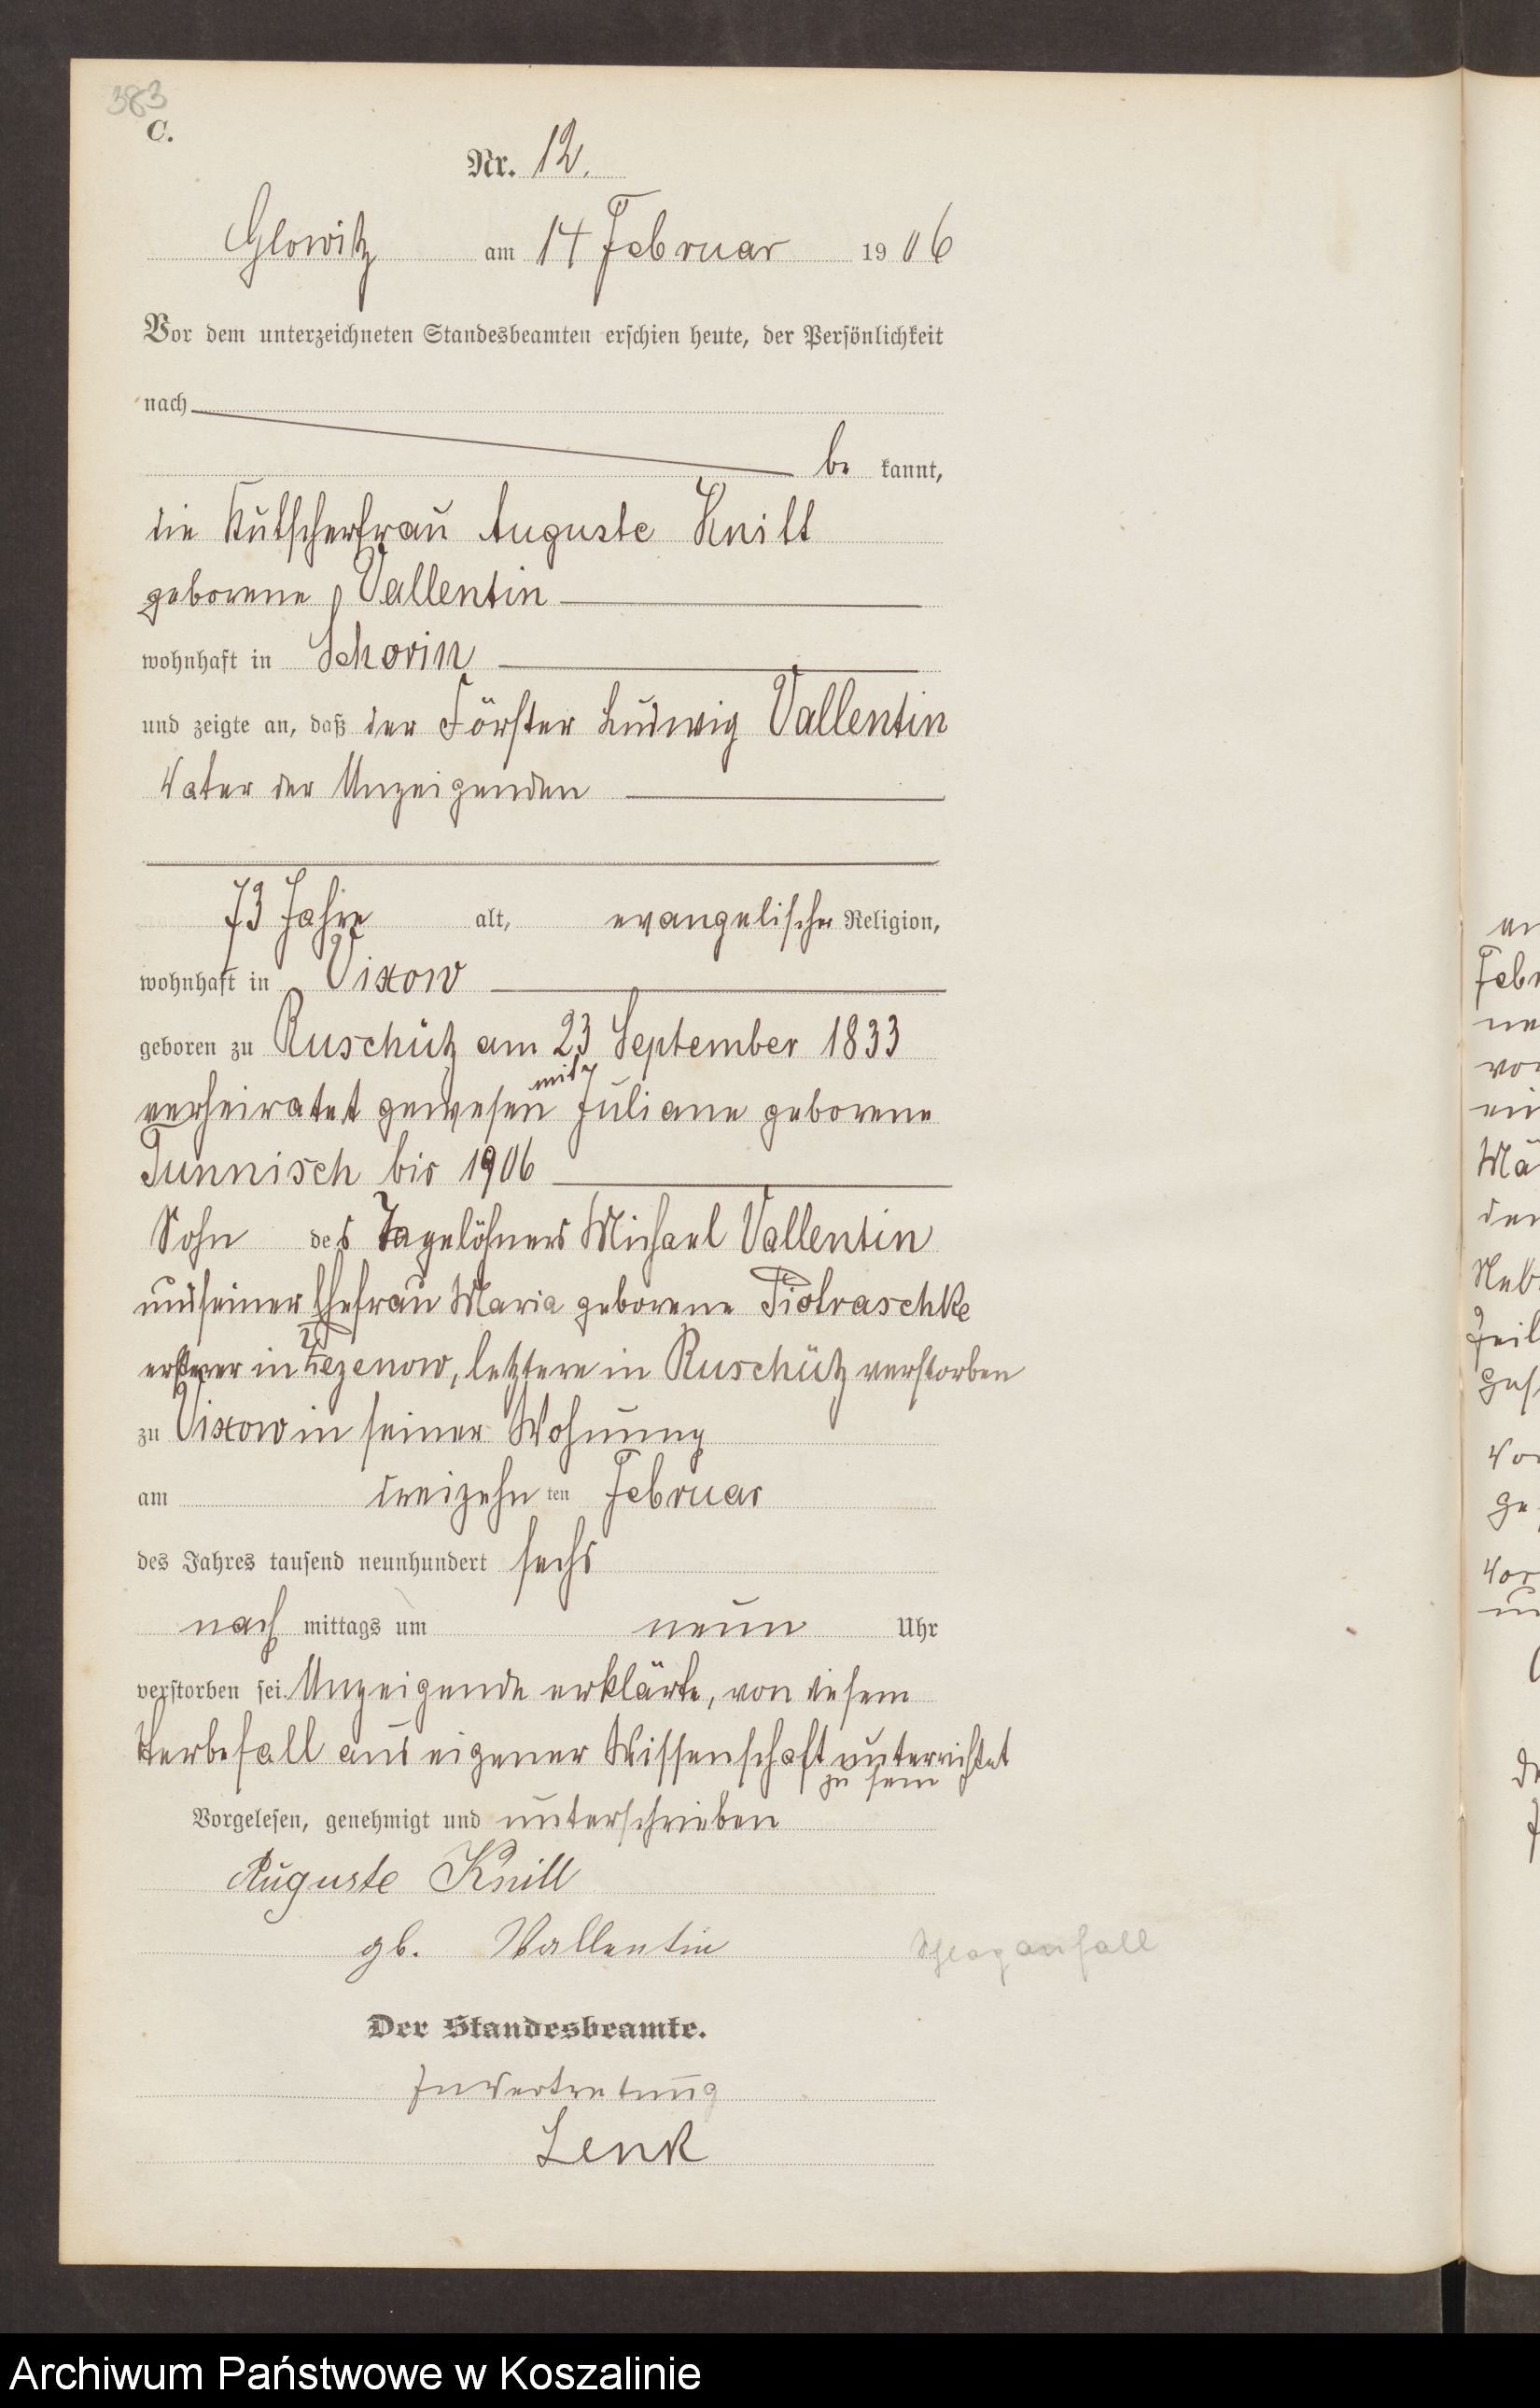 383
C.
Nr. 12.
Glowitz am 14 Februar 1906
Vor dem unterzeichneten Standesbeamten erschien heute, der Persönlichkeit
nach
be kannt,
die Kutscherfrau Auguste Knill
geborene Vallentin
wohnhaft in Schorin
und zeigte an, daß der Förster Ludwig Vallentin
Vater der Anzeigenden
73 Jahre alt, evangelischer Religion,
wohnhaft in Vixow
geboren zu Ruschütz am 23 September 1833
mit
verheiratet gewesen Juliane geborene
bis 1906
Sohn des Tagelöhners Michael Vallentin
und seiner Ehefrau Maria geborene Piotraschke
ersterer in Zezenow, letztere in Ruschütz verstorben
zu Vixow in seiner Wohnung
am dreizehn ten Februar
des Jahres tausend neunhundert sechs
nach mittags um neun Uhr
verstorben sei. Anzeigende erklärte, von diesem
Sterbefall aus eigener Wissenschaft unterrichtet
zu sein
Vorgelesen, genehmigt und unterschrieben
Auguste Knill
gb. Vallentin
Schlaganfall
Der Standesbeamte.
In Vertretung
Lenk
Archiwum Państwowe w Koszalinie